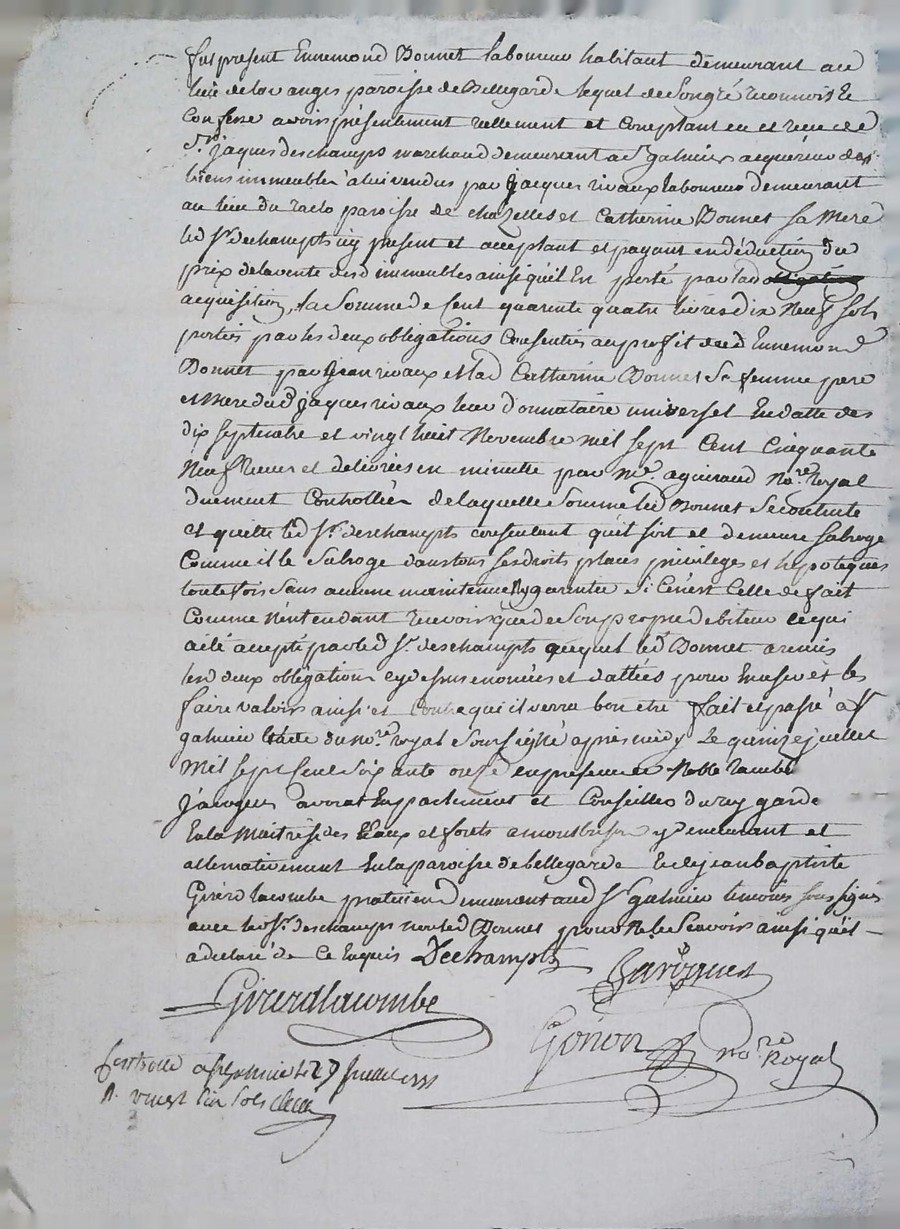 fut present Ennemond Bonnet laboureur habitant demeurant au
lieu de louanges paroisse de Bellegarde lequel de son gré reconnoit et
Confesse avoir présentement reellement et comptant eu et receu de
Sr. jaques deschamps marchand demeurant a St galmier acquereur des
biens immeubles a lui vendus par jacques rivaux laboureur demeurant
au lieu du paroisse de chazelles et Catherine Bonnet sa Mere
led Sr. deschampts icy present et acceptant et payant en déduction du
prix de la vente desd immeubles ainsi qu'il En porté par lad
acquisition, la Somme de Cent quarente quatre livres dix Neuf sols
portés par les deux obligations Consenties au profit dud Ennemond
Bonnet par jean rivaux et lad Catherine Bonnet Sa femme pere
et Mere dud jaques rivaux leur donnataire universel En datte des
dix septembre et vingt huit Novembre mil sept Cent Cinquante
Neuf receues et delivrées en minutte par me. aguiraud No.re Royal
duement Controllées de laquelle Somme led Bonnet se contente
et quitte led Sr. deschampts consentant qu'il soit et demeure subroge
Comme il le Subroge dans tous ses droits places privileges et hypoteques
toute fois sans aucune maintenue ny garentie Si Ce n'est Celle de fait
Comme N'entendant recevoir que de son propre debiteur ce qui
a été accepté par led Sr. deschampts auquel led Bonnet a remis
lesd deux obligations cy dessus enoncées et dattées pour En user et les
faire valoir ainsi et Contre qui il verra bon etre fait et passé a St
galmier Etude du no.re royal soussigné après midy Le quinze juillet
Mil sept Cent Soixante onze en presence de Noble
javogues avocat En parlement et Conseiller du roy garde
En la Maitrise des Eaux et forets a montbrison y demeurant et
alternativement En la paroisse de bellegarde et de jean baptiste
Girerd lacombe praticien demeurant aud St galmier temoins soussignés
avec led Sr. deschamps non led Bonnet pour Ne le Scavoir ainsi qu'il
a declaré de Ce Enquis Dechampts
Javogues
Girerdlacombe
Gonon no.re Royal
Controlle a St galmier le 27 juillet 1771
R. vingt six sols